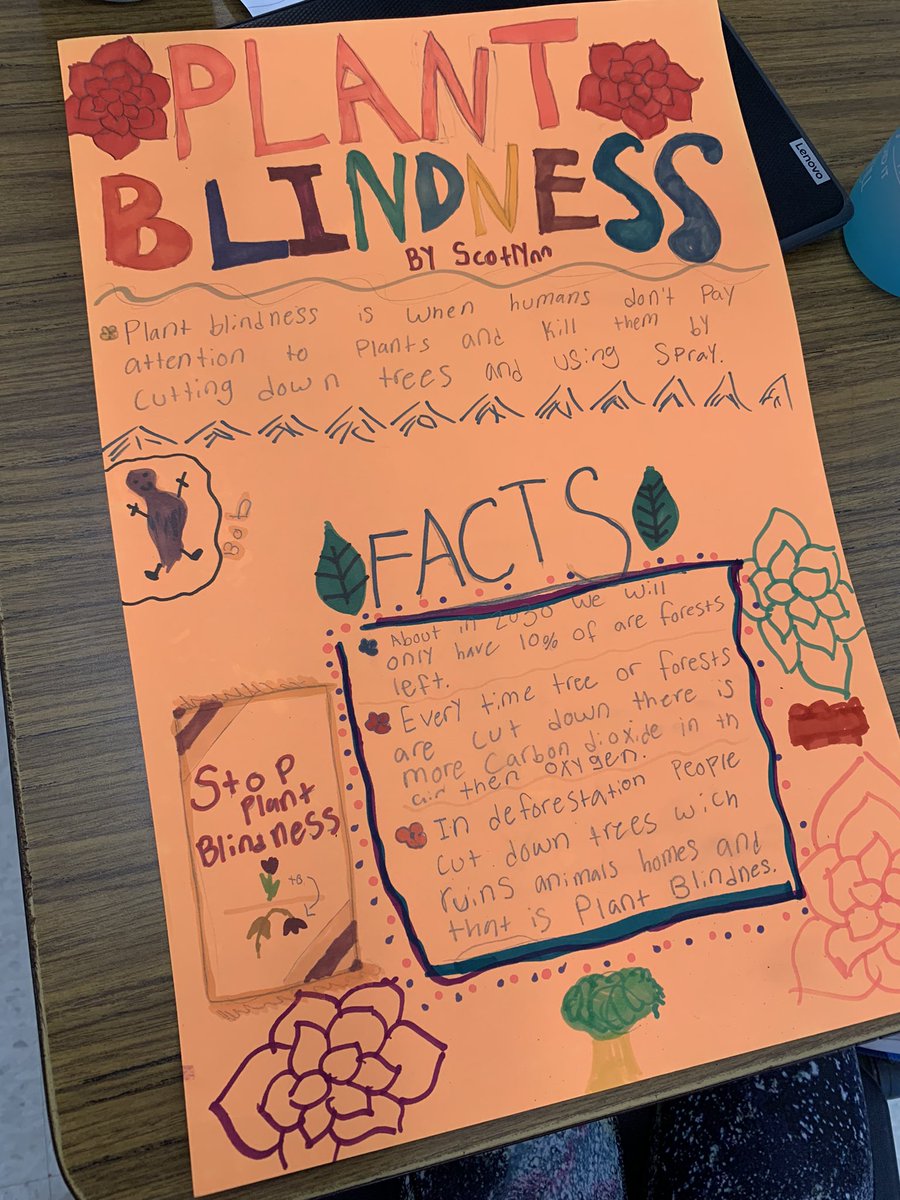 PLANT
BLINDNESS
BY Scotlynn
Plant blindness is when humans don't pay
attention to plants and kill them by
cutting down trees and using spray.
Bob
FACTS
About in 2030 we will
only have 10% of are forests
left.
Every time tree or forests
are cut down there is
more Carbon dioxide in th
air then oxygen.
In deforestation people
cut down trees wich
ruins animals homes and
that is Plant Blindnes.
Stop
Plant
Blindness
to
Lenovo